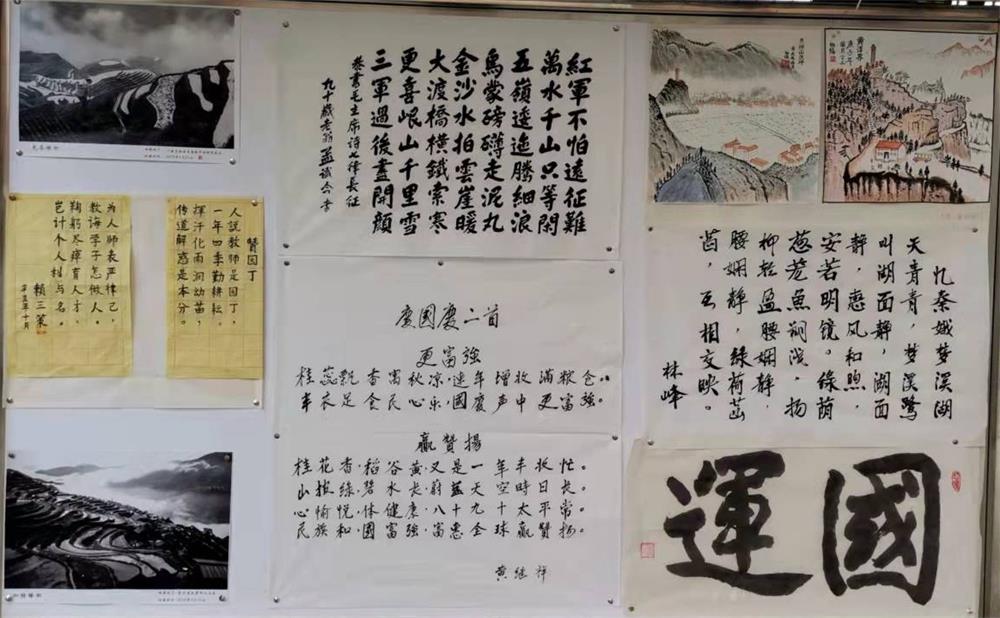 赞园丁
人説教师是园丁，
一年四季勤耕耘。
挥汗化雨润幼苗，
传道解惑是本分。
为人师表严律己，
教诲学子怎做人。
鞠躬尽瘁育人才，
岂计个人利与名。
辛丑年十月
紅軍不怕遠征難
萬水千山只等閑
五嶺逶迤騰細浪
烏蒙磅礴走泥丸
金沙水拍雲崖暖
大渡橋橫鐵索寒
更喜岷山千里雪
三軍過後盡開顏
恭書毛主席詩七律長征
九十歲老翁
慶國慶二首
更富強
桂蕊飘香富秋凉，連年增收滿粮仓。
丰衣足食民心乐，國慶声中更富強。
贏贊揚
桂花香，稻谷黄，又是一年丰收忙。
山披綠，碧水长，蔚蓝天空時日长。
心愉悦，体健康，八十九十太平常。
民族和，國富強，富惠全球贏贊揚。
黄继祥
忆秦娥梦溪湖
天青青，梦溪鷺
叫湖面静，湖面
静，惠风和煦，
安若明镜。绿荫
葱茏鱼翔浅，杨
柳轻盈腰娴静，
腰娴静，绿荷菡
萏，互相交映。
林峰
國運